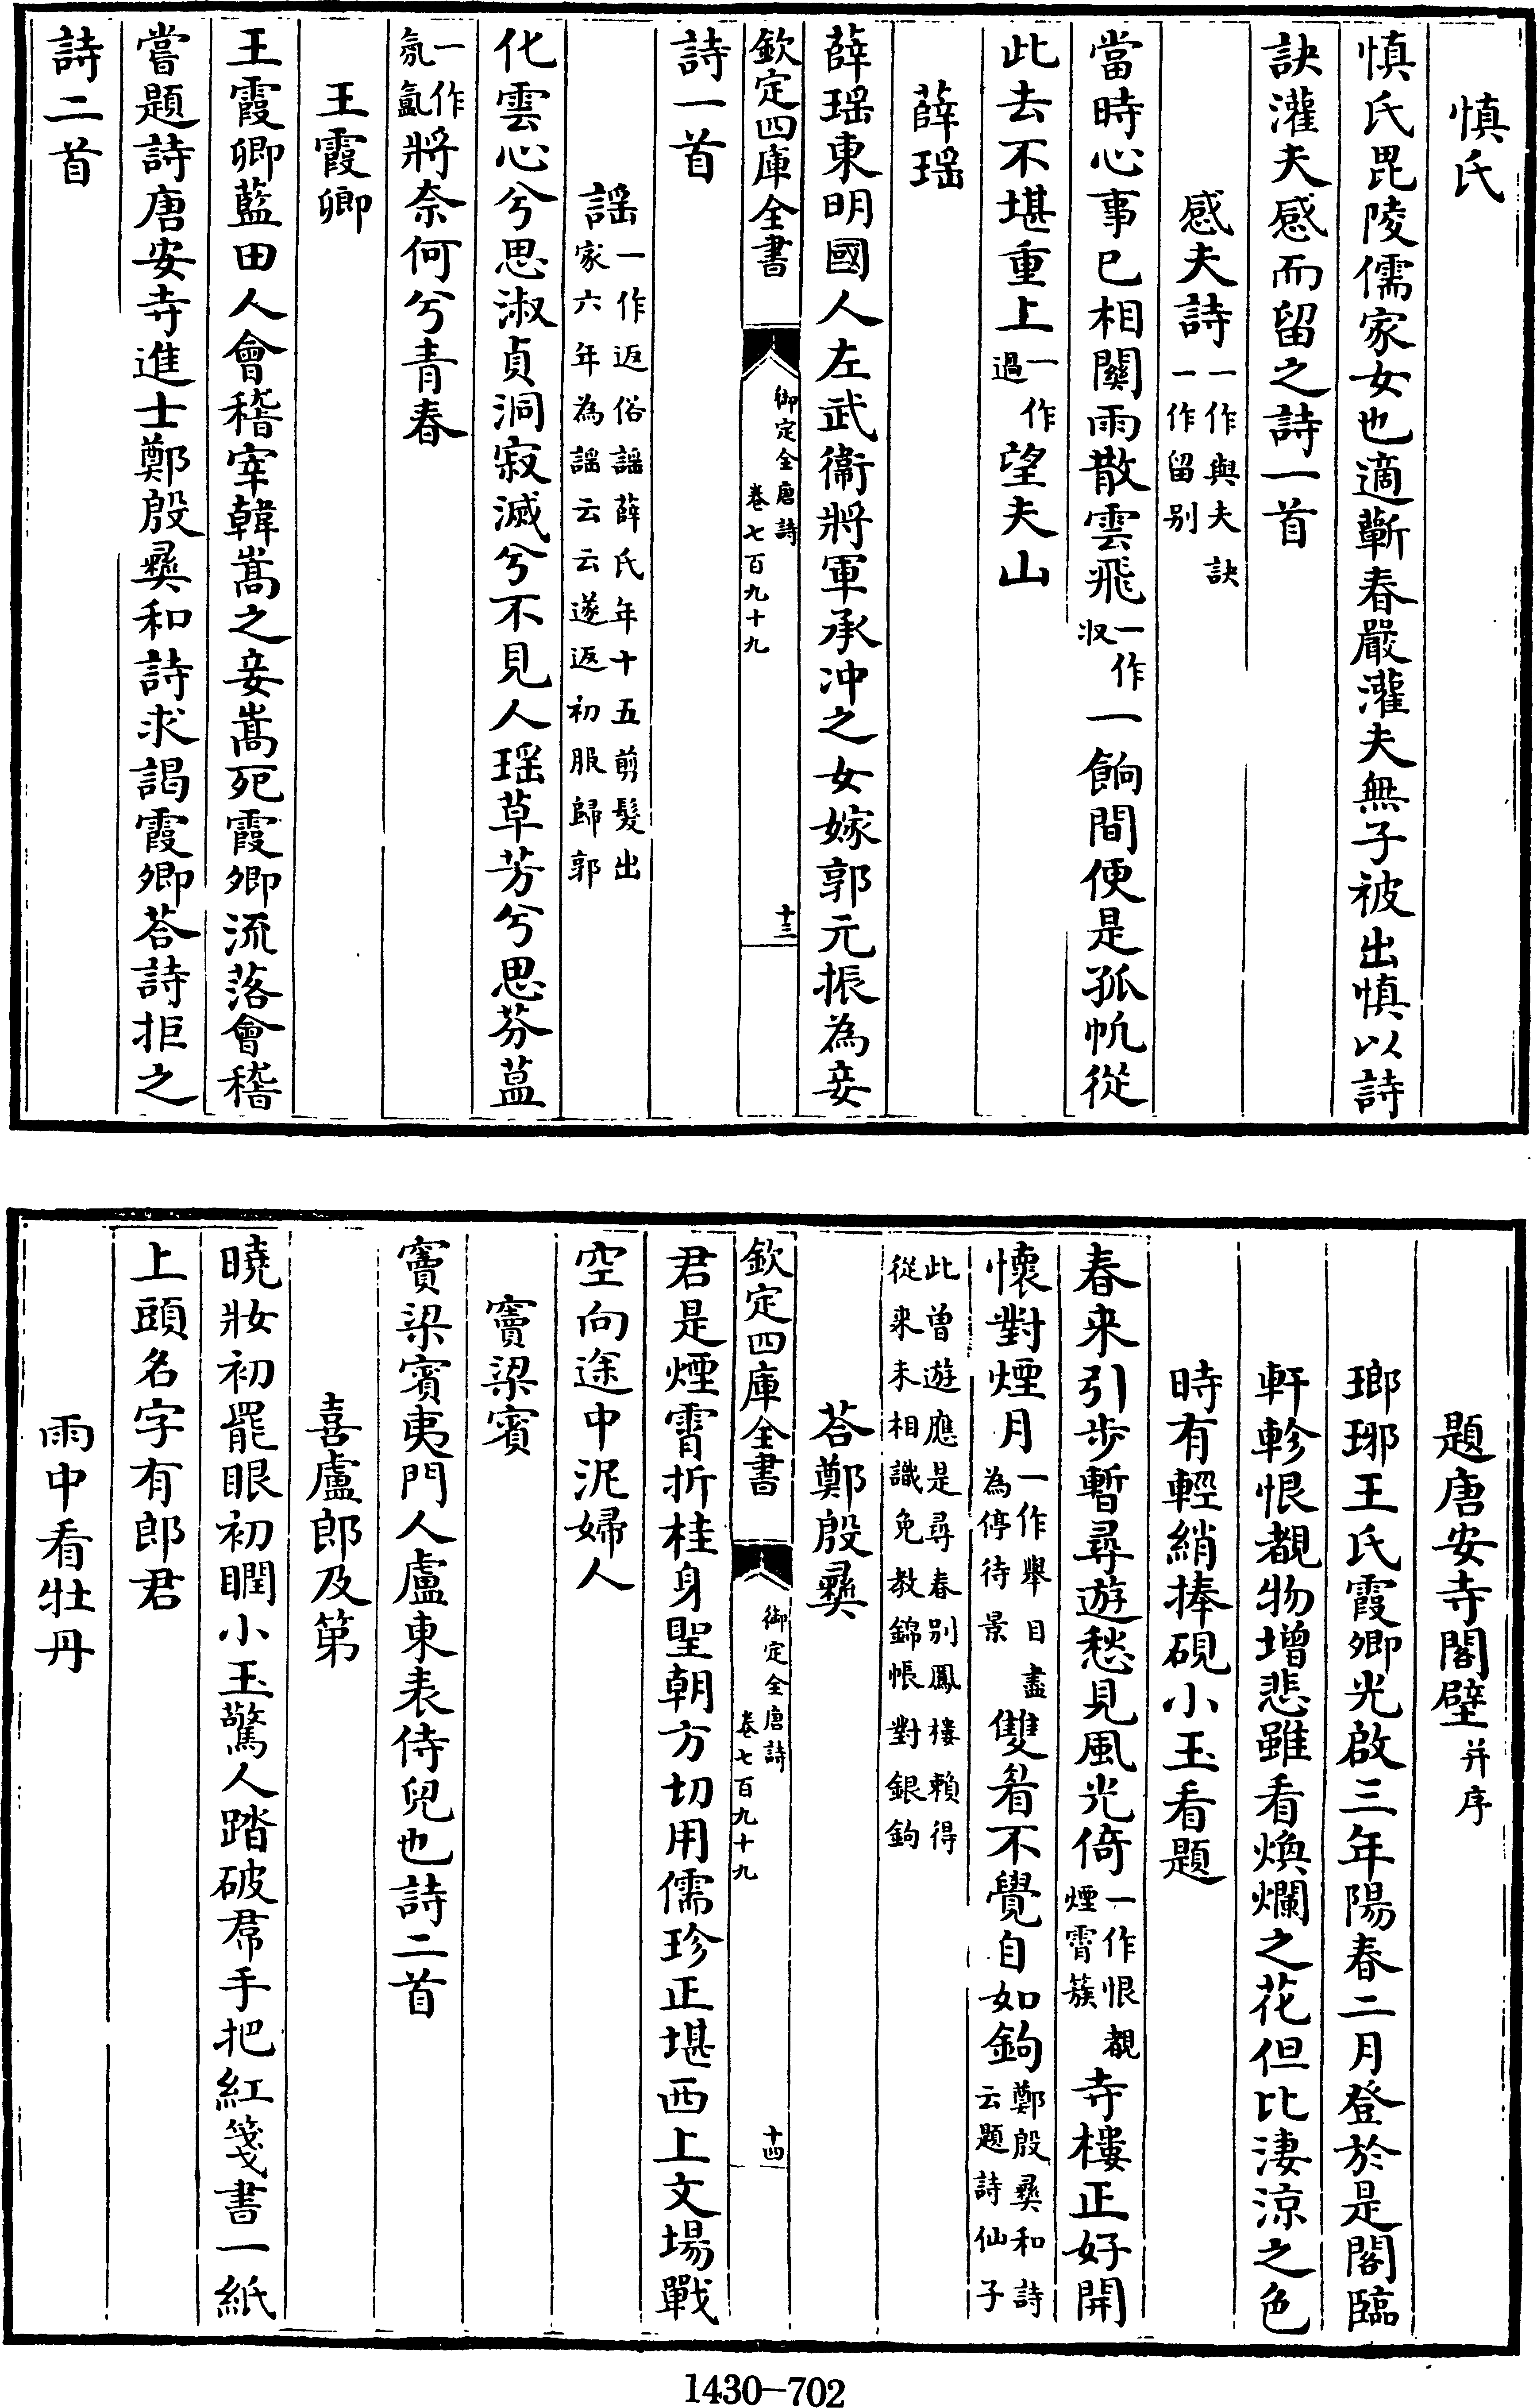 慎氏
慎氏毘陵儒家女也適蘄春嚴灌夫無子被出慎以詩
訣灌夫感而留之詩一首
感夫詩一作與夫訣一作留別
當時心事已相關雨散雲飛一作收一餉間便是孤帆從
此去不堪重上一作過望夫山
薛瑶
薛瑶東明國人左武衞將軍承冲之女嫁郭元振為妾
欽定四庫全書
御定全唐詩
卷七百九十九
十三
詩一首
謡一作返俗謡薛氏年十五剪髮出家六年為謡云云遂返初服歸郭
化雲心兮思淑貞洞寂滅兮不見人瑶草芳兮思芬蒀
一作氛氲將奈何兮青春
王霞卿
王霞卿藍田人會稽宰韓嵩之妾嵩死霞卿流落會稽
嘗題詩唐安寺進士鄭殷彝和詩求謁霞卿荅詩拒之
詩二首
題唐安寺閣壁并序
瑯琊王氏霞卿光啟三年陽春二月登於是閣臨
軒軫恨覩物增悲雖看煥爛之花但比淒涼之色
時有輕綃捧硯小玉看題
春来引步暫尋遊愁見風光倚一作恨覩煙霄簇寺樓正好開
懷對煙月一作舉目盡為停待景雙眉不覺自如鉤鄭殷彝和詩云題詩仙子
此曽遊應是尋春别鳳樓賴得從来未相識免教錦帳對銀鉤
荅鄭殷彝
欽定四庫全書
御定全唐詩
卷七百九十九
十四
君是煙霄折桂身聖朝方切用儒珍正堪西上文場戰
空向途中泥婦人
竇梁賓
竇梁賓夷門人盧東表侍兒也詩二首
喜盧郎及第
曉妝初罷眼初瞤小玉驚人踏破帬手把紅箋書一紙
上頭名字有郎君
雨中看牡丹
1430—702